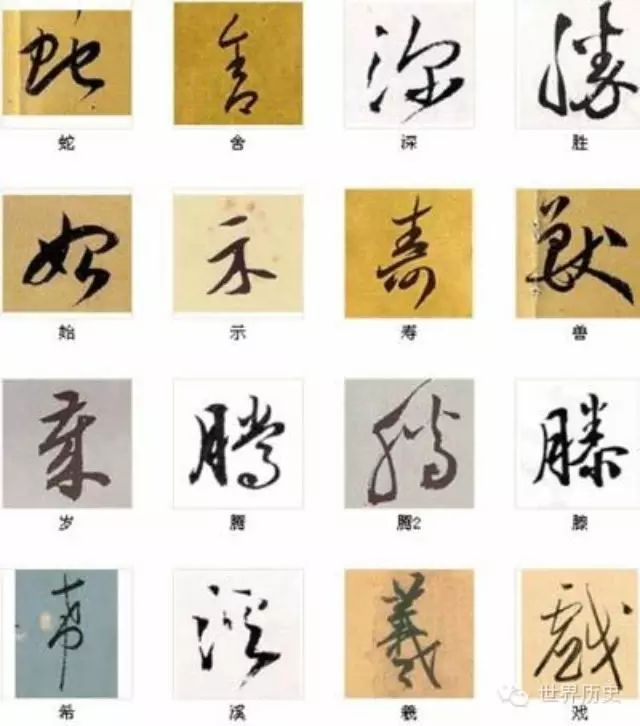 蛇 舍 深 胜
始 示 寿 兽
岁 腾 腾2 滕
希 溪 羲 戏
世界历史